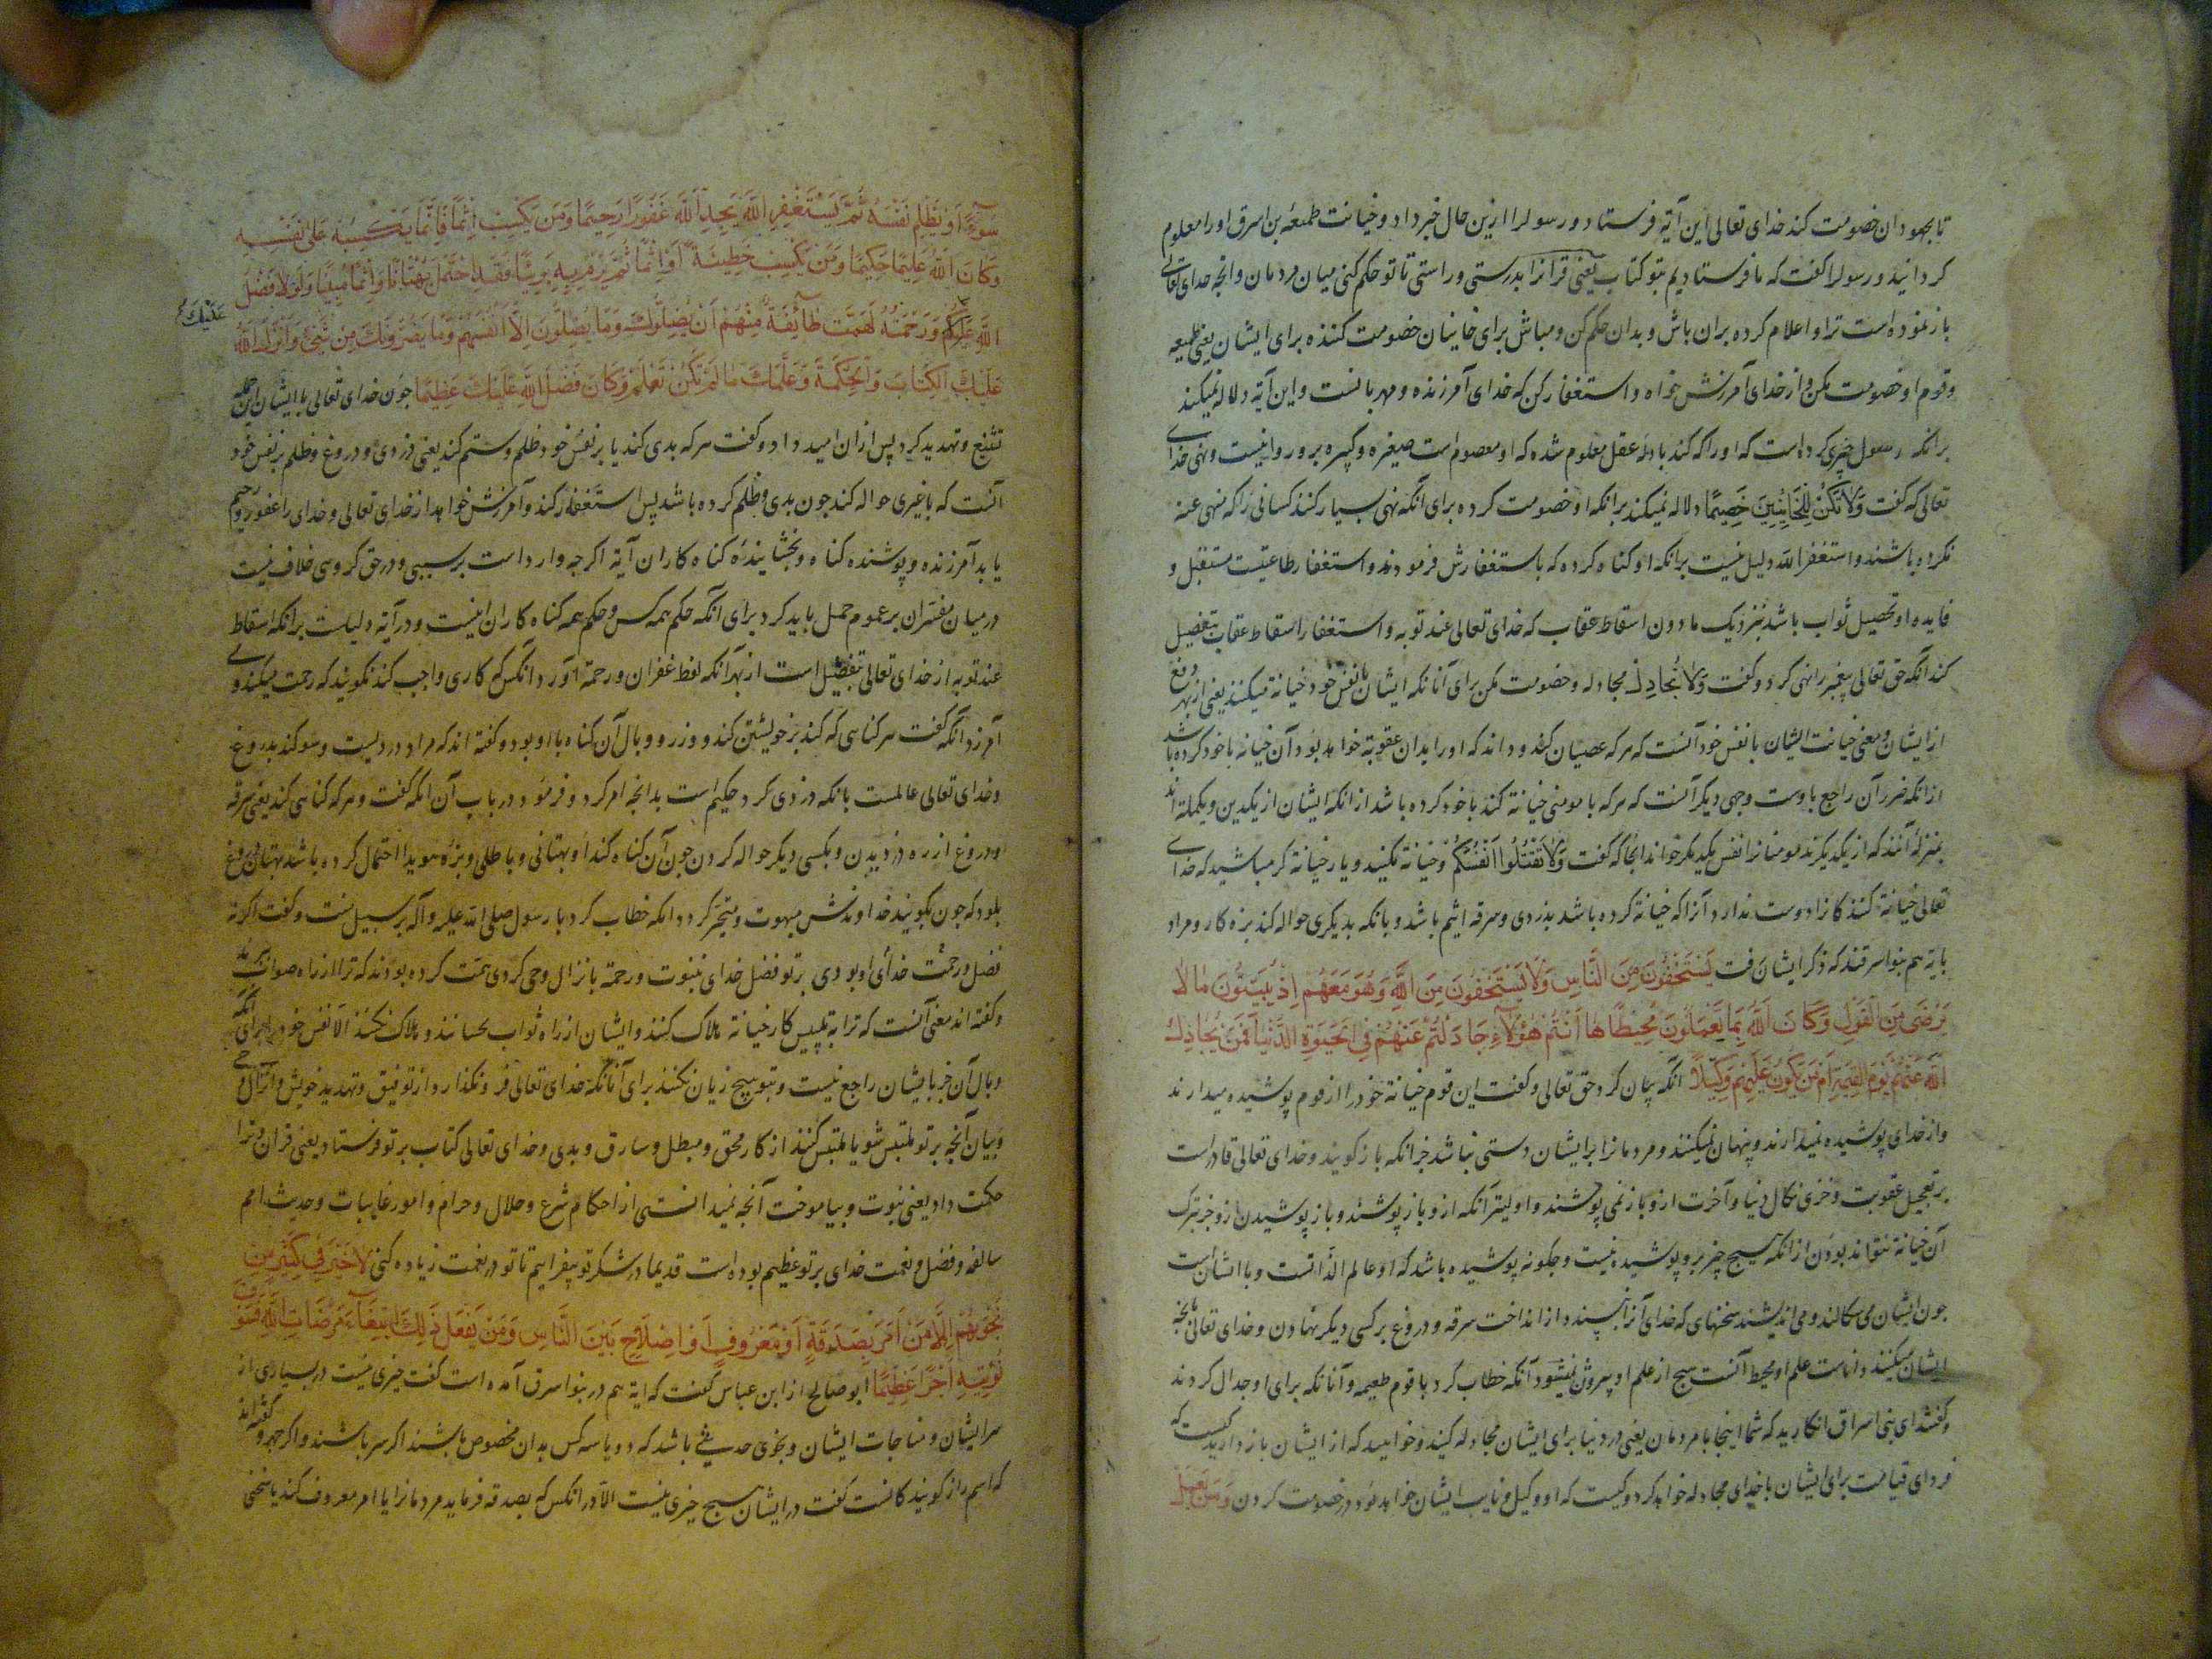 تا بجهودان خصومت کند خدای تعالی این آیة فرستاد و رسول را ازین حال خبر داد و خیانت طمعة بن اسرق او را معلوم
کردانید و رسول را کفت که ما فرستادیم بتو کتاب یعنی قرانرا بدرستی و راستی تا تو حکم کنی میان مردمان وانجه خدای تعالی
باز نموده است ترا و اعلام کرده بران باش و بدان حکم کن و مباش برای خاینان خصومت کننده برای ایشان یعنی طعیمه
و قوم او خصومت مکن و از خدای آمرزش خواه و استغفار کن که خدای آمرزنده و مهربانست و این آیة دلاله نمیکند
برانکه رسول کرد است که او را که کند بادله عقل معلوم شده که او معصوم است صغیره و کبیره برو روا نیست و نهی خدای
تعالی که کفت وَلَا تَكُنْ لِلْخَائِنِينَ خَصِيمًا دلاله نمیکند برانکه او خصومت کرده برای انکه نهی بسیار کنند کسانی را که منهی عنه
نکرده باشند و استغفر الله دلیل نیست برانکه او کناه کرده که باستغفارش فرمودند و استغفار طاعتیست مستقبل و
فایده او تحصیل ثواب باشد بنزدیک ما دون اسقاط عقاب که خدای تعالی عند توبه و استغفار اسقاط عقاب بتفضیل
کند انکه حق تعالی پیغمبر را نهی کرد و کفت وَلَا تُجَادِلْ مجادله و خصومت مکن برای آنانکه ایشان با نفس خود خیانة میکنند یعنی از بهر دفع
از ایشان و معنی خیانت ایشان با نفس خود آنست که هرکه عصیان کند و داند که او را بدان عقوبة خواهد بود آن خیانه با خود کرده باشد
ازانکه ضرر آن راجع باوست وجهی دیکر آنست که هرکه با مومنی خیانة کند با خود کرده باشد ازانکه ایشان از یکدین و یکملة اند
بمنزله آنند که از یکدیکرند مومنانرا نفس یکدیکر خواند انجا که کفت وَلَا تَقْتُلُوا أَنْفُسَكُمْ و خیانة مکنید و یار خیانة کر مباشید که خدای
تعالی خیانة کنندکانرا دوست ندارد آنرا که خیانة کرده باشد بدزدی و سرقه اثیم باشد و بانکه بدیکری حواله کند بزه کار و مراد
بایة هم بنو اسرقند که ذکر ایشان رفت يَسْتَخْفُونَ مِنَ النَّاسِ وَلَا يَسْتَخْفُونَ مِنَ اللَّهِ وَهُوَ مَعَهُمْ إِذْ يُبَيِّتُونَ مَا لَا
يَرْضَى مِنَ الْقَوْلِ وَكَانَ اللَّهُ بِمَا يَعْمَلُونَ مُحِيطًا هَا أَنْتُمْ هَؤُلَاءِ جَادَلْتُمْ عَنْهُمْ فِي الْحَيَوةِ الدُّنْيَا فَمَنْ يُجَادِلُ
اللَّهَ عَنْهُمْ يَوْمَ الْقِيَمَةِ أَمْ مَنْ يَكُونُ عَلَيْهِمْ وَكِيلًا انکه بیان کرد حق تعالی و کفت این قوم خیانة خود را از قوم پوشیده میدارند
و از خدای پوشیده نمیدارند و پنهان نمیکنند و مردمانرا بر ایشان دستی نباشد جز انکه باز کویند و خدای تعالی قادرست
بر تعجیل عقوبت و خزی و نکال دنیا و آخرت ازو باز نمی پوشند و اولیتر آنکه ازو باز پوشند و باز پوشیدن ازو جز بترک
آن خیانة نتواند بودن ازانکه هیچ چیز برو پوشیده نیست و جکونه پوشیده باشد که او عالم الذاتست و با ایشانست
جون ایشان می سکالند و می اندیشند سخنهای که خدای آنرا نپسندد از انداخت سرقه و دروغ بر کسی دیکر نهادن و خدای تعالی بانجه
ایشان میکنند داناست علم او محیط آنست هیچ از علم او بیرون نشود آنکه خطاب کرد با قوم طعیمه و آنانکه برای او جدال کردند
و کفت ای بنی اسراق انکارید که شما اینجا با مردمان یعنی در دنیا برای ایشان مجادله کنید و خواهید که از ایشان باز دارید کیست که
فردای قیامت برای ایشان با خدای مجادله خواهد کرد و کیست که او وکیل و نایب ایشان خواهد بود در خصومت کردن وَمَنْ يَعْمَلْ
سُوءًا أَوْ يَظْلِمْ نَفْسَهُ ثُمَّ يَسْتَغْفِرِ اللَّهَ يَجِدِ اللَّهَ غَفُورًا رَحِيمًا وَمَنْ يَكْسِبْ إِثْمًا فَإِنَّمَا يَكْسِبُهُ عَلَى نَفْسِهِ
وَكَانَ اللَّهُ عَلِيمًا حَكِيمًا وَمَنْ يَكْسِبْ خَطِيئَةً أَوْ إِثْمًا ثُمَّ يَرْمِ بِهِ بَرِيئًا فَقَدِ احْتَمَلَ بُهْتَانًا وَإِثْمًا مُبِينًا وَلَوْلَا فَضْلُ
اللَّهِ عَلَيْكُمْ وَرَحْمَتُهُ لَهَمَّتْ طَائِفَةٌ مِنْهُمْ أَنْ يُضِلُّوكَ وَمَا يُضِلُّونَ إِلَّا أَنْفُسَهُمْ وَمَا يَضُرُّونَكَ مِنْ شَيْءٍ وَأَنْزَلَ اللَّهُ
عَلَيْكَ
عَلَيْكَ الْكِتَابَ وَالْحِكْمَةَ وَعَلَّمَكَ مَا لَمْ تَكُنْ تَعْلَمُ وَكَانَ فَضْلُ اللَّهِ عَلَيْكَ عَظِيمًا جون خدای تعالی با ایشان این جمله
تشنیع و تهدید کرد پس ازان امید داد و کفت هرکه بدی کند یا بر نفس خود ظلم و ستم کند یعنی دزدی و دروغ و ظلم بر نفس خود
آنست که با غیری حواله کند جون بدی و ظلم کرده باشد پس استغفار کند و آمرزش خواهد از خدای تعالی و خدای را غفور و رحیم
یابد آمرزنده و پوشنده کناه و بخشاینده کناه کاران آیة اکرجه وارد است بر سببی و در حق کروهی خلاف نیست
در میان مفسران بر عموم حمل باید کرد برای آنکه حکم همه کس و حکم همه کناه کاران اینست و در آیة دلیلست برانکه اسقاط
عند توبه از خدای تعالی تفضیل است از بهر آنکه لفظ غفران و رحمة آورد انکس که کاری واجب کند نکویند که رحمت میکند و می
آمرزد آنکه کفت هر کناهی که کند بر خویشتن کند و وزر و وبال آن کناه با او بود و کفته اند که مراد دزدیست و سوکند بدروغ
و خدای تعالی عالمست بانکه دزدی کرد حکیم است بدانجه امر کرد و فرمود در باب آن انکه کفت و هرکه کناهی کند یعنی سرقه
و دروغ از ره دزدیدن و بکسی دیکر حواله کردن جون آن کناه کند او بهتانی و باطلی و بزه هویدا احتمال کرده باشد بهتان دروغ
بود که جون بکویند خداوندش مبهوت و متحیر کردد انکه خطاب کرد با رسول صلی الله علیه و آله بر سبیل منت و کفت اکر نه
فضل و رحمت خدای او بودی بر تو فضل خدای نبوت و رحمة بانزال وحی کردی همت کرده بودند که ترا از راه صواب ببرند
و کفته اند معنی آنست که ترا به تلبیس کار خیانة هلاک کنند و ایشان از راه ثواب و هلاک نکنند الا نفس خود را برای آنکه
وبال آن جز بایشان راجع نیست و بتو هیچ زیان نکنند برای آنانکه خدای تعالی فرو نکذارد از توفیق و تهدید خویش و انزال وحی
و بیان آنجه بر تو ملتبس شود یا ملتبس کنند از کار محق و مبطل و سارق و بدی و خدای تعالی کتاب بر تو فرستاد یعنی قران و ترا
حکمت داد یعنی نبوت و بیاموخت آنجه نمیدانستی از احکام شرع و حلال و حرام و امور غایبات و حدیث امم
سالفه و فضل و نعمت خدای بر تو عظیم بوده است قدیما در شکر تو بیفزایم تا تو در نعمت زیاده کنی لَا خَيْرَ فِي كَثِيرٍ مِنْ
نَجْوَيهُمْ إِلَّا مَنْ أَمَرَ بِصَدَقَةٍ أَوْ مَعْرُوفٍ أَوْ إِصْلَاحٍ بَيْنَ النَّاسِ وَمَنْ يَفْعَلْ ذَلِكَ ابْتِغَاءَ مَرْضَاتِ اللَّهِ فَسَوْفَ
نُؤْتِيهِ أَجْرًا عَظِيمًا ابو صالح از ابن عباس کفت که ایة هم در بنو اسرق آمده است کفت خیری نیست در بسیاری از
سر ایشان و مناجات ایشان و نجوی حدیثی باشد که دو یا سه کس بدان مخصوص باشند اکر سر باشند و اکر جهر و کفته اند
که اسم راز کویندکانست کفت در ایشان هیچ خیری نیست الا در انکس که بصدقه فرماید مردمانرا یا امر معروف کند یا سخنی